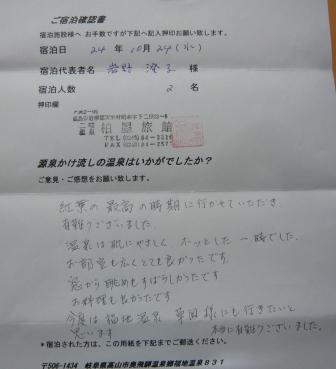 ご宿泊確認書
宿泊施設様へ お手数ですが下記へ記入押印お願い致します。
宿泊日 24 年 10月 24 (水)
宿泊代表者名 岩野 澄子 様
宿泊人数 2 名
押印欄
二岐温泉 柏屋旅館
TEL
FAX
源泉かけ流しの温泉はいかがでしたか?
ご意見・ご感想をお願い致します。
紅葉の最高の時期に行かせていただき
有難うございました。
温泉は肌にやさしく ホッとした一時でした。
お部屋も広くとても良かったです
窓から眺めもすばらしかったです
お料理も良かったです
今度は福地温泉 草円様にも行きたいと
思います 本当に有難うございました。
*宿泊された方は、この用紙を下記までご郵送ください。
〒506-1434 岐阜県高山市奥飛騨温泉郷福地温泉831